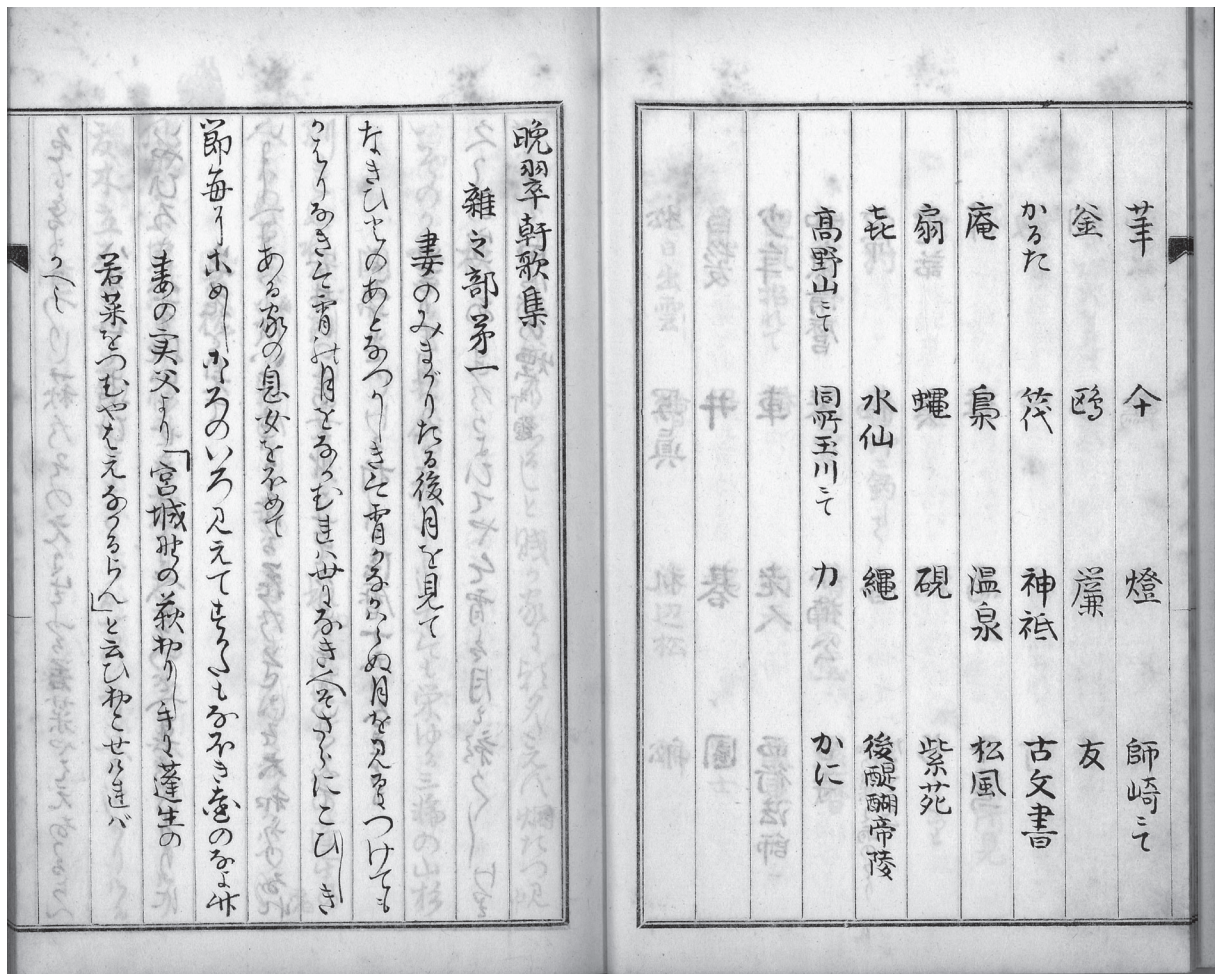 芋 傘 燈 師崎にて
釜 鴎 簾 友
かるた 筏 神祗 古文書
庵 梟 温泉 松風
扇 蠅 硯 紫苑
㐂 水仙 縄 後醍醐帝陵
高野山にて 同所玉川にて 力 かに
晩翠軒歌集
雑之部第一
妻のみまかりたる後月を見て
なきひとのあとなつかしき今宵かなかはらぬ月を見るにつけても
かへりなき今宵の月をなかむれは世になき人そさらにこひしき
ある家の息女をほめて
節毎にこめしこころのいろ見えてすくもなほき庭のなよ竹
妻の実父より「宮城野の萩折りし手に蓬生の
若菜をつむやはえなかるらん」と云ひおこせければ
かへし